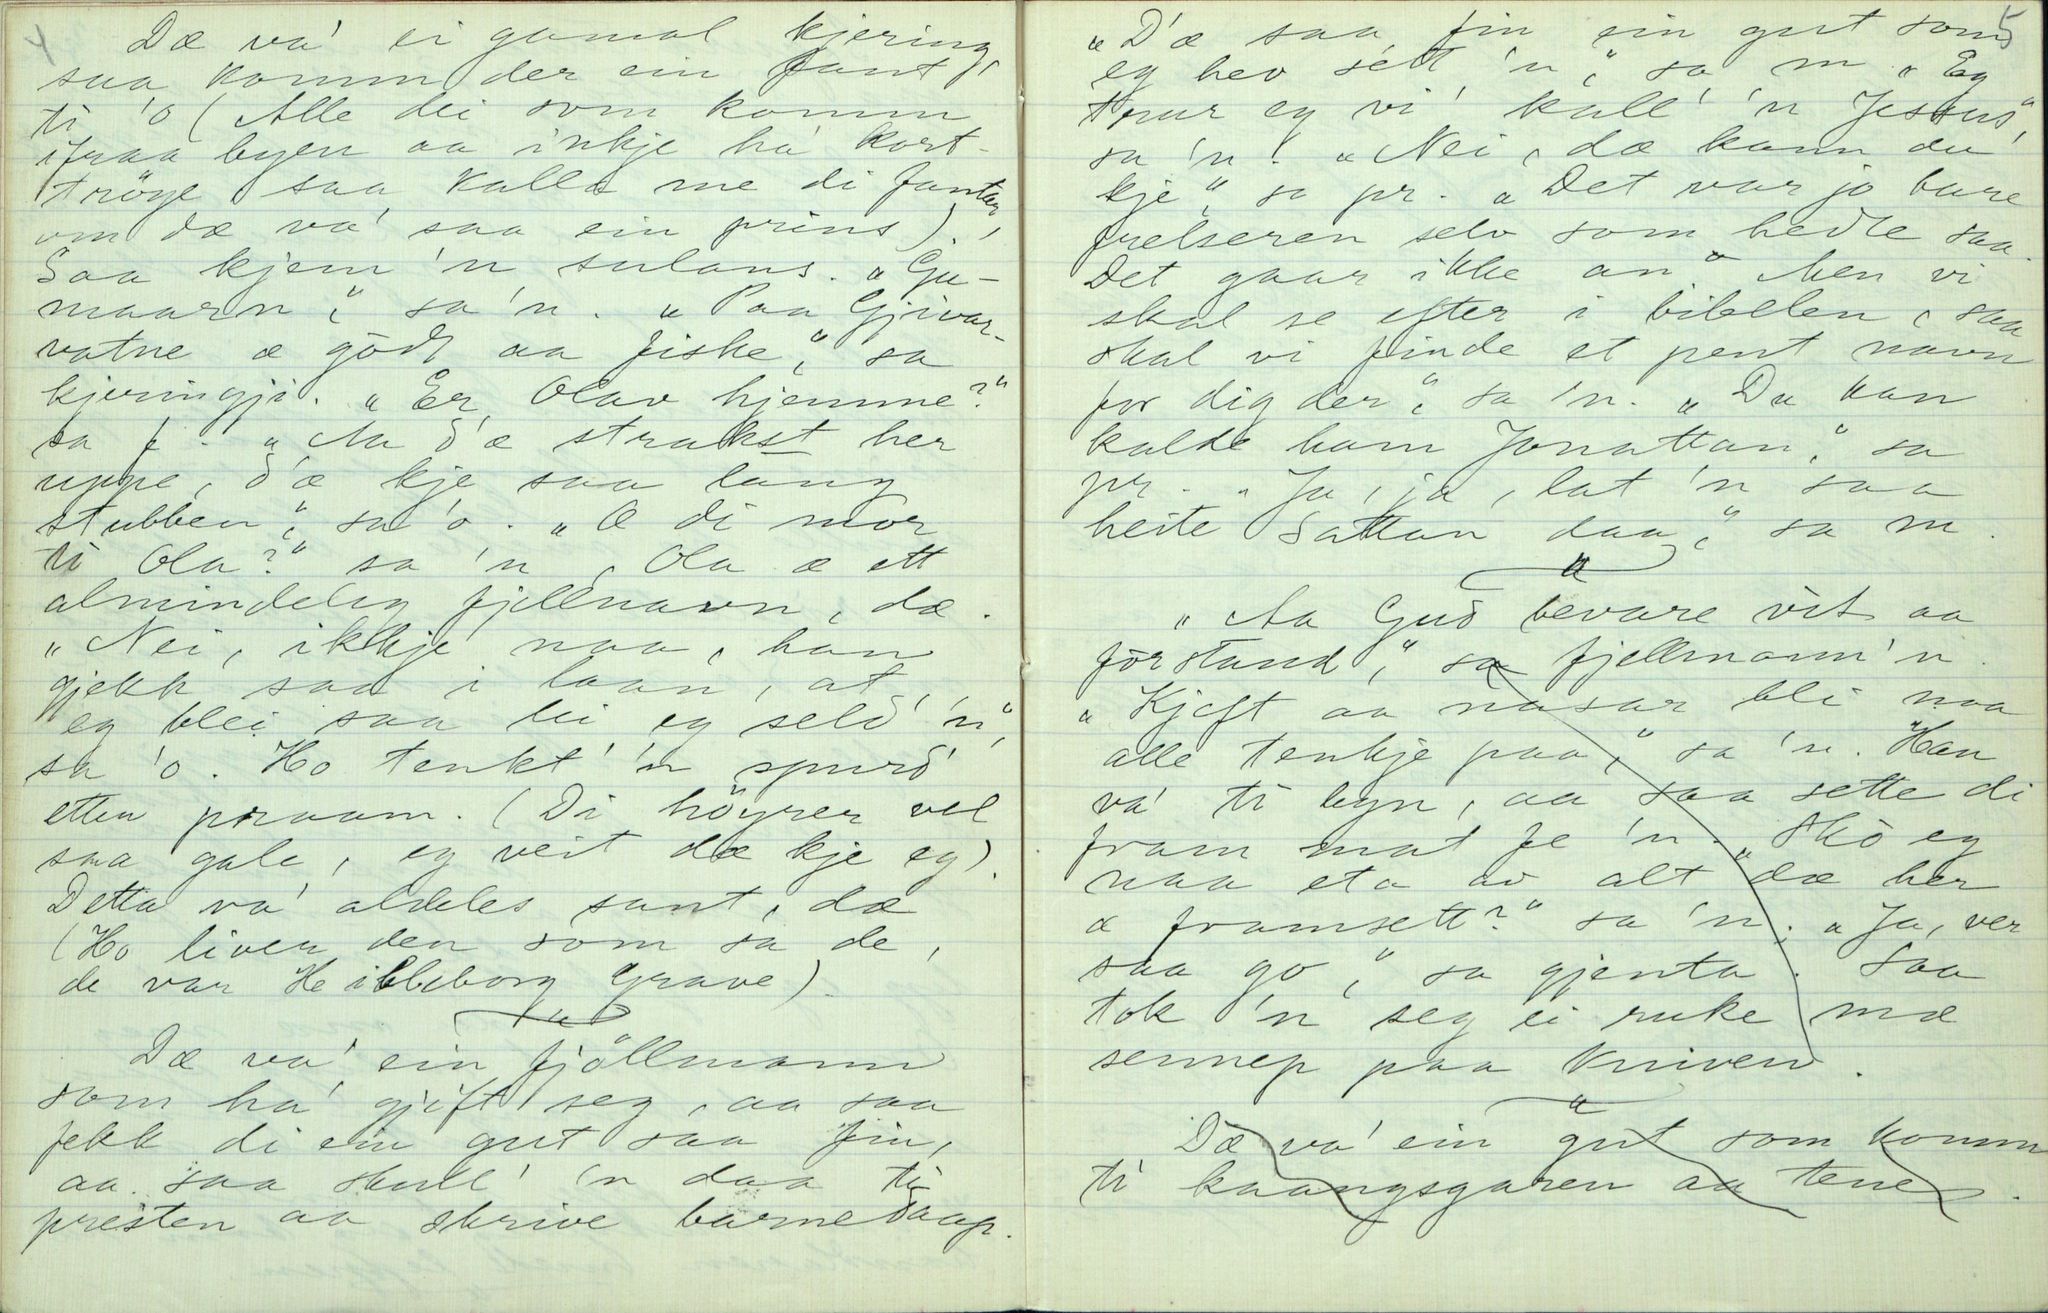 4
Dæ va' ei gamal kjering,
saa komm der ein fant
ti 'o (Alle dei som komm
ifraa byen aa inkje ha kort-
tröye saa kalla me di fantar,
om dæ va' saa ein prins),
Saa kjem 'n sulans. „Gu-
maarn," sa 'n. „Paa Gjivar-
vatne æ godt aa fiske," sa
kjeringji. „Er Olav hjemme?"
sa f. „Aa d'æ strakst her
uppe, d'æ kje saa lang
stubben", sa 'o. „Æ di mor
ti Ola?" sa 'n, Ola æ ett
almindeleg fjellnavn, dæ.
„Nei, ikkje naa, han
gjekk saa i laan, at
eg blei saa lei eg seld' 'n",
sa 'o. Ho tenkt' 'n spurd'
etter praam. (Di höyrer vel
saa gale, eg veit dæ kje eg).
Detta va' aldeles sant, dæ
(Ho liver den som sa de,
de var Heilleborg Grave).
Dæ va' ein fjöllmann
som ha' gjift seg, aa saa
fekk di ein gut saa fin,
aa saa skull' 'n daa ti
presten aa skrive barnedaap.
5
„D'æ saa fin ein gut som
eg hev sétt 'n," sa m „Eg
trur eg vi' kall' 'n Jesus",
sa 'n. „Nei, dæ kann du
kje", sa pr. „Det var jo bare
frelseren selv som hedte saa.
Det gaar ikke an" Men vi
skal se efter i bibelen, saa
skal vi finde et pent navn
for dig der," sa 'n. „Du kan
kalde ham Jonattan," sa
pr. „Ja, ja, lat 'n saa
heite Sattan daa," sa m.
„Aa Gud bevare vit aa
forstand," sa fjellmann'n.
„Kjeft aa nasar bli naa
alle tenkje paa," sa 'n. Han
va' ti byn, aa saa sette di
fram mat fe 'n. „Sko eg
naa eta av alt dæ her
æ framsett?" sa 'n. „Ja, ver
saa go," sa gjenta. Saa
tok 'n seg ei ruke mæ
sennep paa kniven.
Dæ va' ein gut som komm
ti kaangsgaren aa tene.